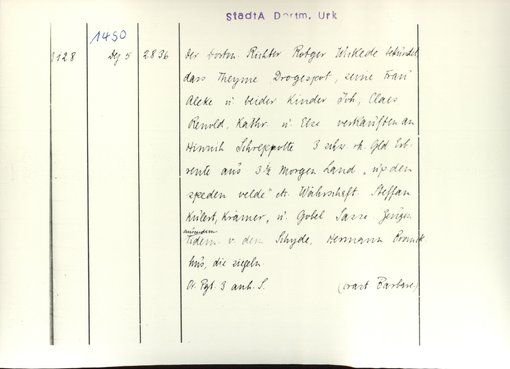 StadtA Dortm. Urk
1450
3128 Dez 5 2836 Der Dortm. Richter Rotger Wickede bekundet
dass Theyme Drogespot, seine Frau
Aleke u. beider Kinder Joh, Claes
Renold, Kathr. u. Else verkauften an
Hinrich 3 rh. Gld Erb-
rente aus 3½ Morgen Land „up den
velde" etc. Währschaft. Steffan
Krämer, u. Gobel Sasse Zeugen
v. dem Schyde, Hermann
hus, die siegeln.
Or. Pgt. 3 anh. S. (crast Barbare)